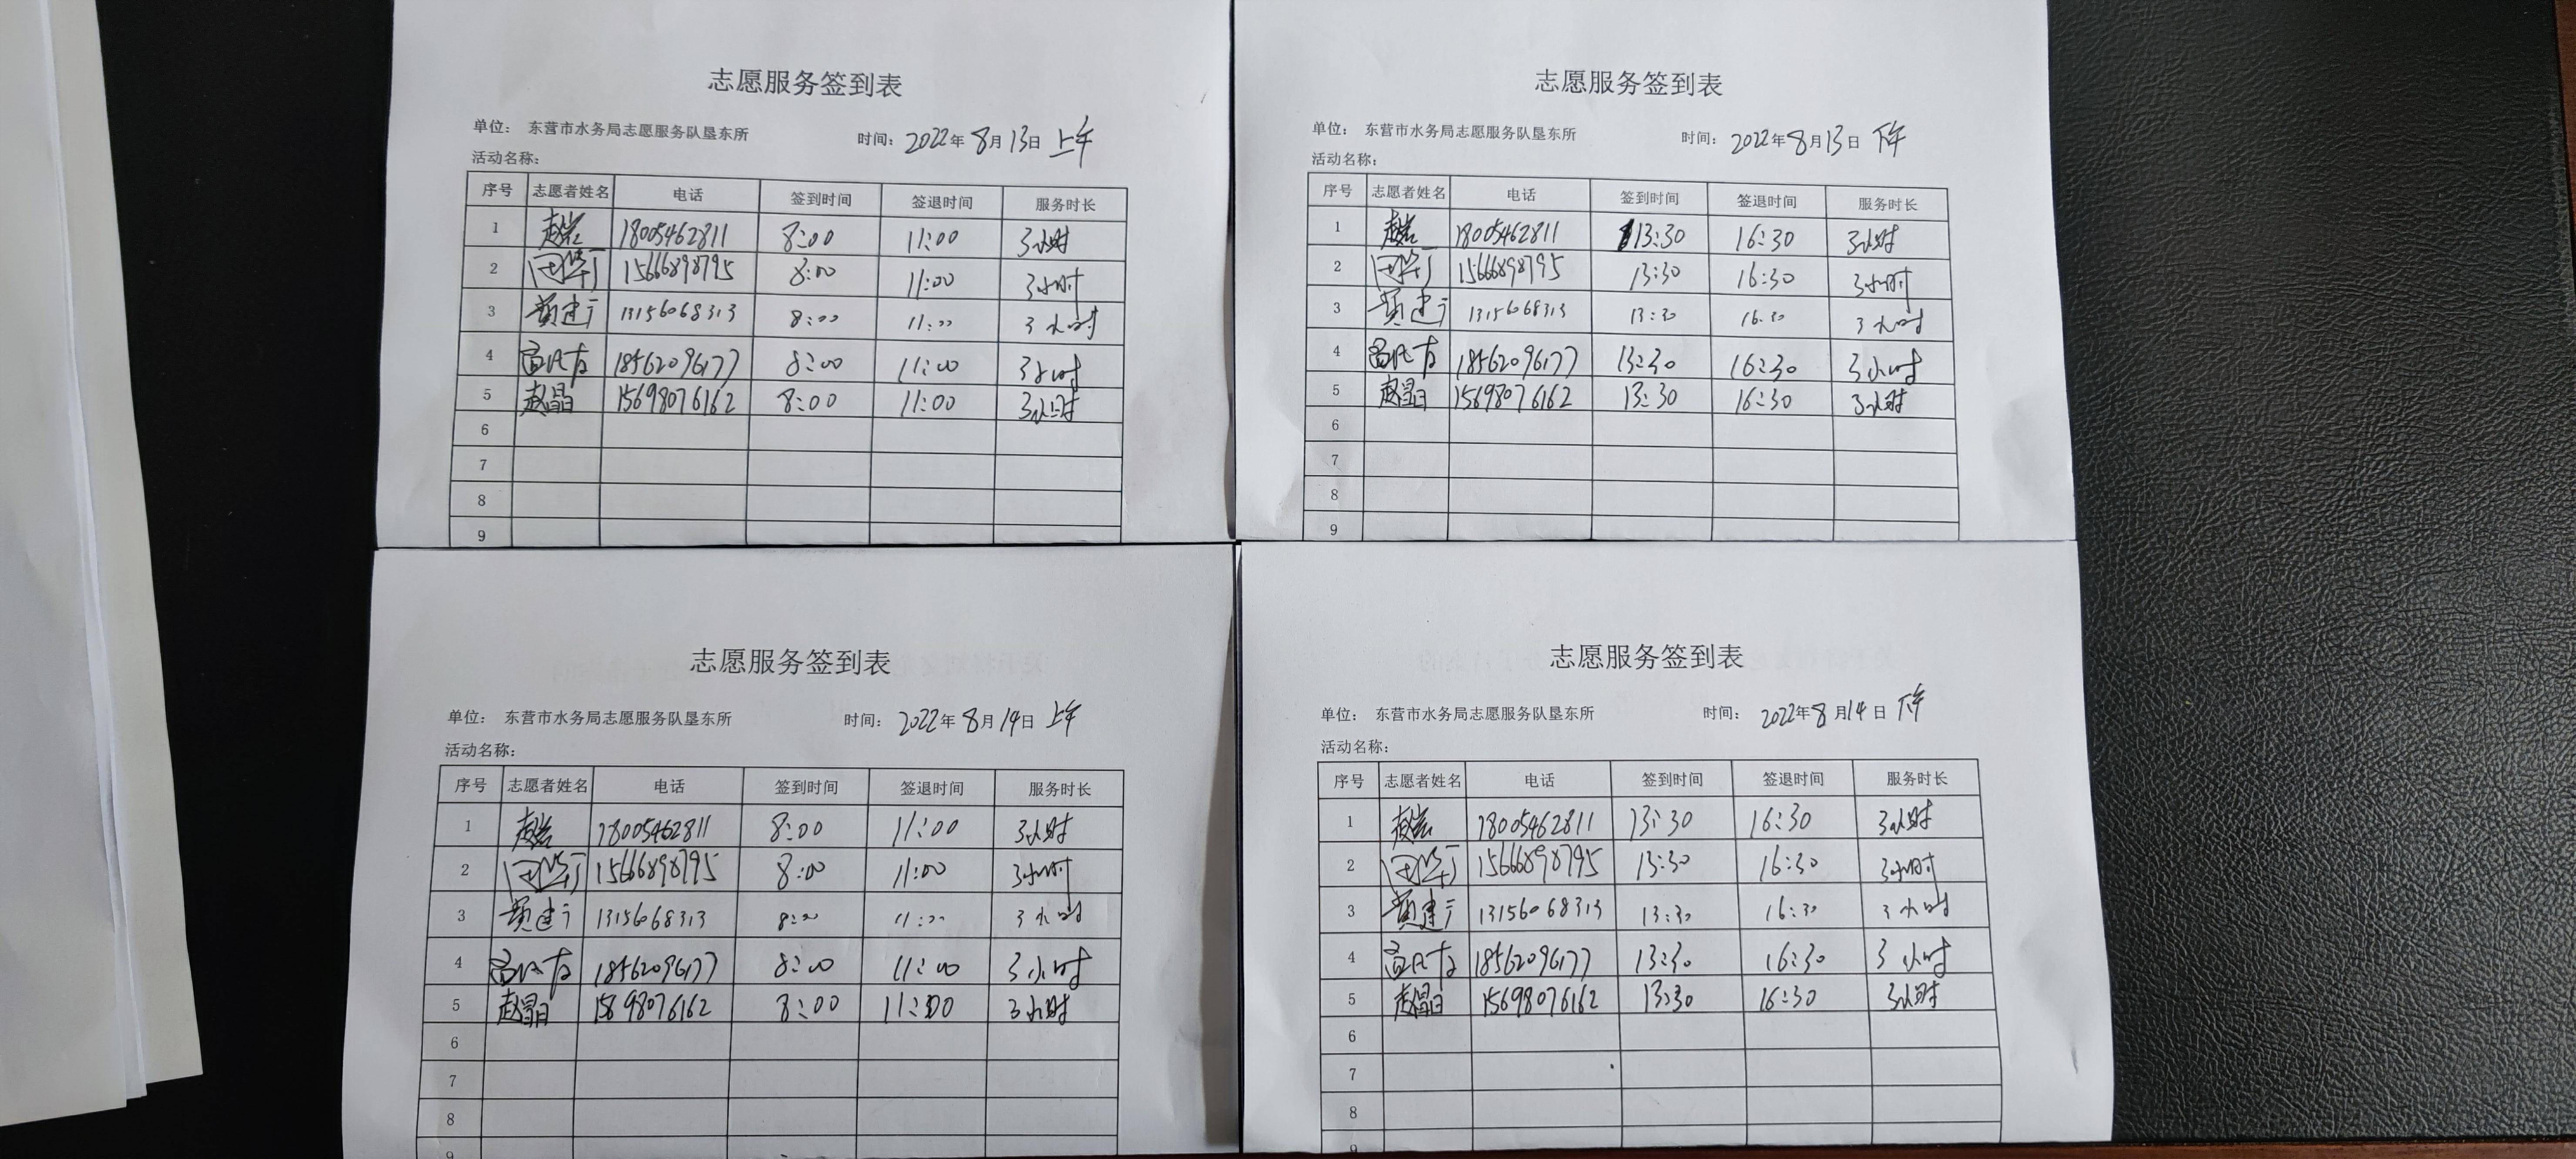 志愿服务签到表
单位： 东营市水务局志愿服务队垦东所 时间：2022年8月13日 上午
活动名称：
序号 志愿者姓名 电话 签到时间 签退时间 服务时长
1 赵岩 18005462811 8:00 11:00 3小时
2 15666898795 8:00 11:00 3小时
3 黄建宁 13156068313 8:00 11:00 3小时
4 18562096177 8:00 11:00 3小时
5 赵晶 15698076162 8:00 11:00 3小时
6
7
8
9
志愿服务签到表
单位： 东营市水务局志愿服务队垦东所 时间：2022年8月13日 下午
活动名称：
序号 志愿者姓名 电话 签到时间 签退时间 服务时长
1 赵岩 18005462811 13:30 16:30 3小时
2 15666898795 13:30 16:30 3小时
3 黄建宁 13156068313 13:30 16:30 3小时
4 18562096177 13:30 16:30 3小时
5 赵晶 15698076162 13:30 16:30 3小时
6
7
8
9
志愿服务签到表
单位： 东营市水务局志愿服务队垦东所 时间：2022年8月14日 上午
活动名称：
序号 志愿者姓名 电话 签到时间 签退时间 服务时长
1 赵岩 18005462811 8:00 11:00 3小时
2 15666898795 8:00 11:00 3小时
3 黄建宁 13156068313 8:00 11:00 3小时
4 18562096177 8:00 11:00 3小时
5 赵晶 15698076162 8:00 11:00 3小时
6
7
8
9
志愿服务签到表
单位： 东营市水务局志愿服务队垦东所 时间：2022年8月14日 下午
活动名称：
序号 志愿者姓名 电话 签到时间 签退时间 服务时长
1 赵岩 18005462811 13:30 16:30 3小时
2 15666898795 13:30 16:30 3小时
3 黄建宁 13156068313 13:30 16:30 3小时
4 18562096177 13:30 16:30 3小时
5 赵晶 15698076162 13:30 16:30 3小时
6
7
8
9